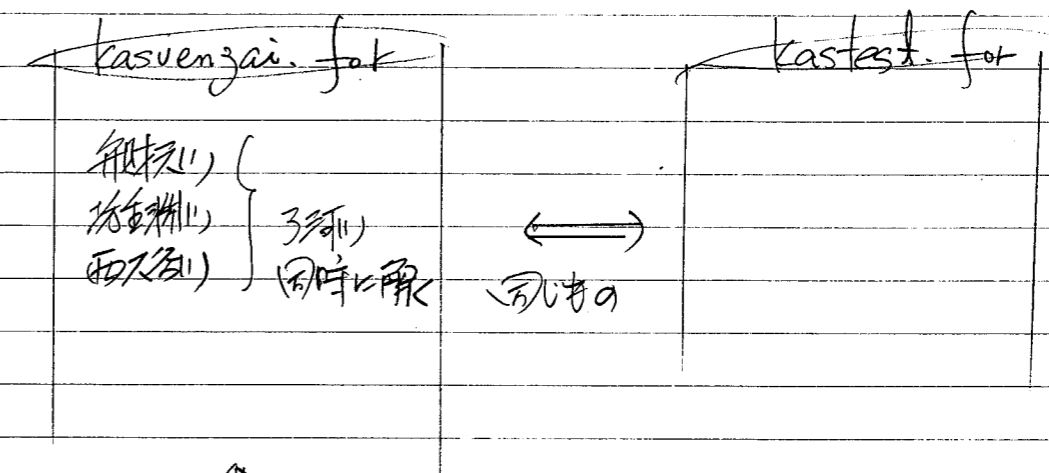 kasvenzai.for
kastest.for
弁財天川
坊主渕川
西大谷川
3河川
同時に解く
同じもの